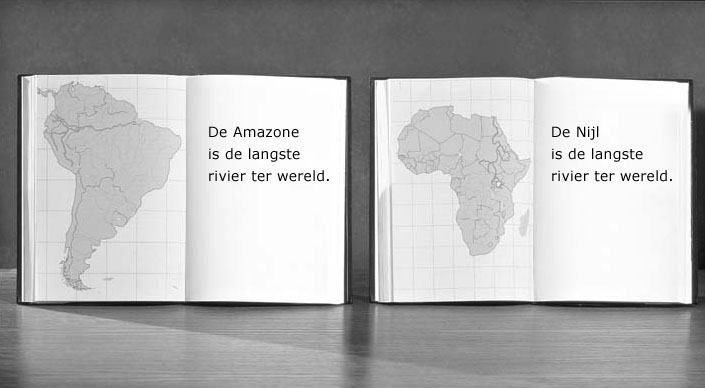 De Amazone
is de langste
rivier ter wereld.
De Nijl
is de langste
rivier ter wereld.